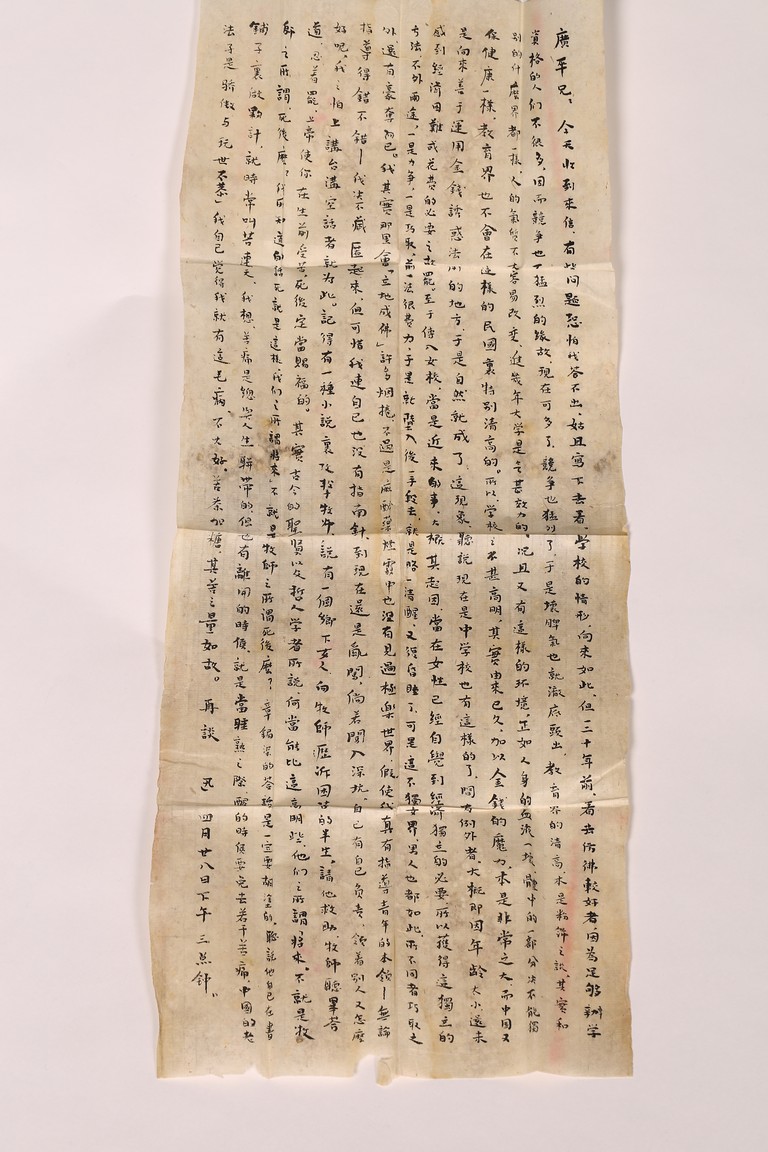 廣平兄：今天收到來信，有些問題恐怕我答不出，姑且寫下去看。學校的情形，向來如此，但三十年前，看去仿彿較好者，因為足夠辦学
資格的人们不很多，因而競爭也不猛烈的緣故，現在可多了，競爭也猛烈了，于是壞脾氣也就澈底顕出。教育界的清高，本是粉飾之談，其實和
別的什麼界都一樣，人的氣質不大容易改变，進幾年大学是无甚效力的。况且又有這樣的环境，正如人身的血液一壞，體中的一部分决不能獨
保健康一樣，教育界也不會在這樣的民國裏特別清高的。所以，学校之不甚高明，其實由來已久，加以金錢的魔力，本是非常之大，而中国又
是向來善于運用金錢誘惑法術的地方，于是自然就成了這現象。聽說現在是中学校也有這樣的了，間有例外者，大概即因年齡太小，還未
感到經濟困難或花費的必要之故罷。至于傳入女校，當是近來的事，大概其起因，當在女性已經自覺到經濟獨立的必要，所以獲得這獨立的
方法，不外兩途，一是力爭，一是巧取，前一法很費力，于是就墮入後一手段去，就是略一清醒，又復昏睡了。可是這不獨女界，男人也都如此，所不同者巧取之
外，還有豪奪而已。我其實那里會「立地成佛」，許多烟捲，不過是麻醉藥，煙霧中也沒有見過極樂世界。假使我真有指導青年的本領—無論
指導得錯不錯—我决不藏匿起來，但可惜我連自己也沒有指南針，到現在還是亂闖，倘若闖入深坑，自己有自己负责，領着別人又怎麼
好呢，我之怕上講台講空話者就为此。記得有一種小說裏攻擊牧师，說有一個鄉下女人，向牧師瀝訴困苦的半生，請他救助，牧師聽畢答
道，忍着罷，上帝使你在生前受苦，死後定當賜福的。其實古今的聖賢以及哲人学者所說，何嘗能比這高明些，他們之所謂「将來」，不就是牧
師之所謂「死後」麼？我所知道的話就是這樣，我们之所謂「将來」不就是牧師之所謂死後麼？章錫琛的答話是一定要胡塗的，聽說他自己在書
鋪子裏做夥計，就時常叫苦連天。我想，苦痛是總與人生聯帶的，但也有離開的時候，就是當睡熟之際。醒的時候要免去若干苦痛，中國的老
法子是「驕傲与玩世不恭」，我自己覺得我就有這毛病，不大好。苦茶加糖，其苦之量如故。再談 迅 四月廿八日下午三点鈡